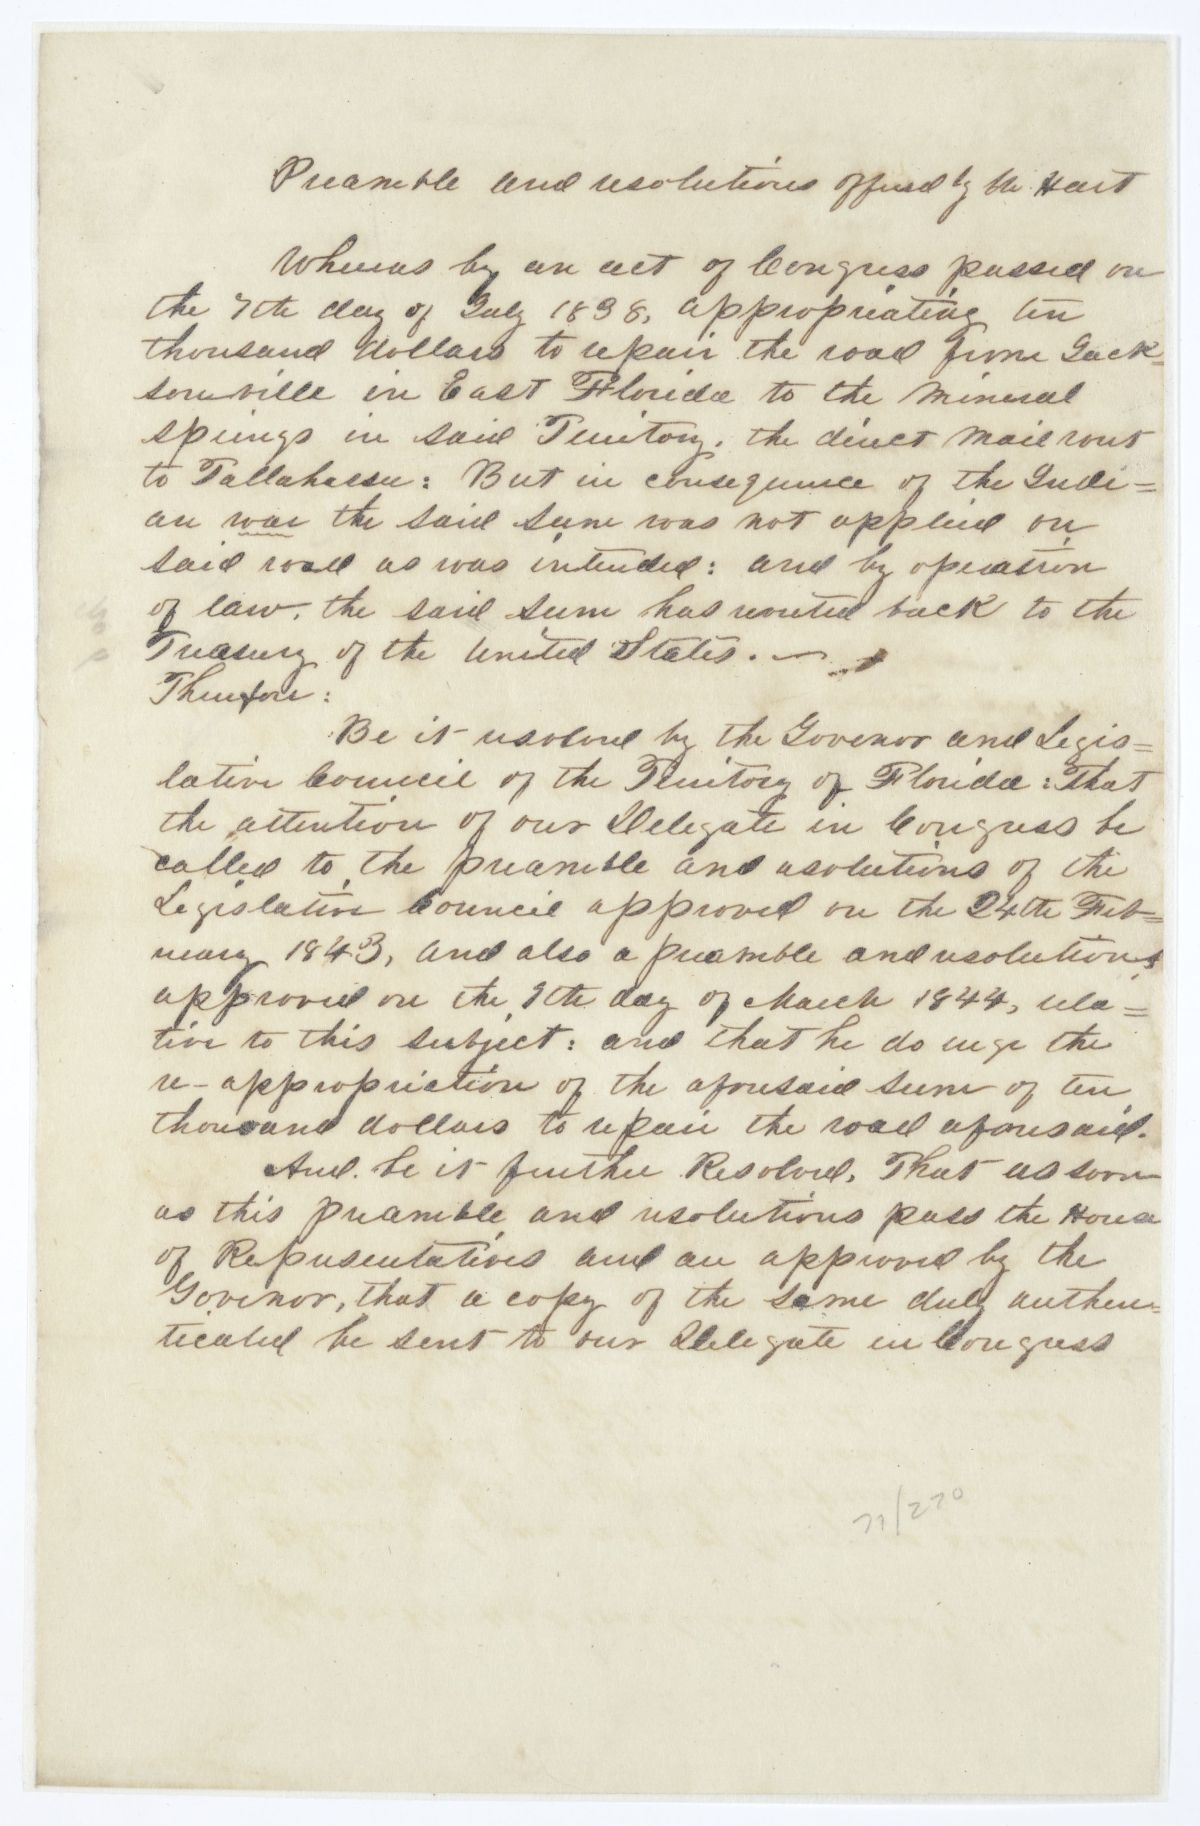 Preamble and resolutions offered by Mr Hart
Whereas by an act of Congress passed on
the 7th day of July 1838, appropriating ten
thousand dollars to repair the road from Jack=
sonville in East Florida to the Mineral
springs in said Territory. the direct Mail rout
to Tallahassee: But in consequence of the Indi=
an war the said sum was not applied on
said road as was intended: and by operation
of law. the said sum has reverted back to the
Treasury of the United States.
Therefore:
Be it resolved by the Govenor and Legis=
lative Council of the Territory of Florida: That
the attention of our Delegate in Congress be
called to the preamble and resolutions of the
Legislative Council approved on the 24th Feb=
ruary 1843, and also a preamble and resolutions
approved on the 9th day of March 1844, rela=
tive to this subject: and that he do urge the
re-appropriation of the aforesaid sum of ten
thousand dollars to repair the road aforesaid.
And. be it further Resolved, That as soon
as this preamble and resolutions pass the House
of Representatives and are approved by the
Govenor, that a copy of the same duly authen=
ticated be sent to our Delegate in Congress
77/270